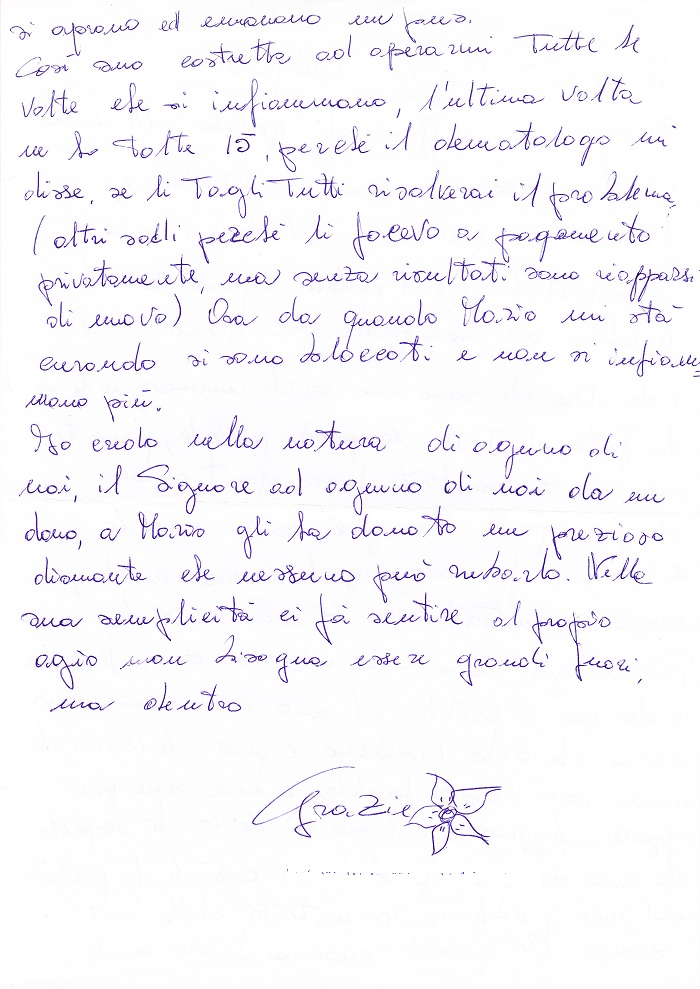 si aprono ed emanano un puzzo.
Così sono costretta ad operarmi Tutte le
volte che si infiammano, l'ultima volta
ne ho Tolte 15, perché il dematologo mi
disse, se li Togli Tutti risolverai il problema,
(altri soldi perché li facevo a pagamento
privatamente, ma senza risultati sono riapparsi
di nuovo) Ora da quando Mario mi stà
curando si sono bloccati e non si infiam=
mano più.
Io credo nella natura di ognuno di
noi, il Signore ad ognuno di noi da un
dono, a Mario gli ha donato un prezioso
diamante che nessuno può rubarlo. Nella
sua semplicità ci fà sentire al proprio
agio non bisogna essere grandi fuori,
ma dentro
Grazie